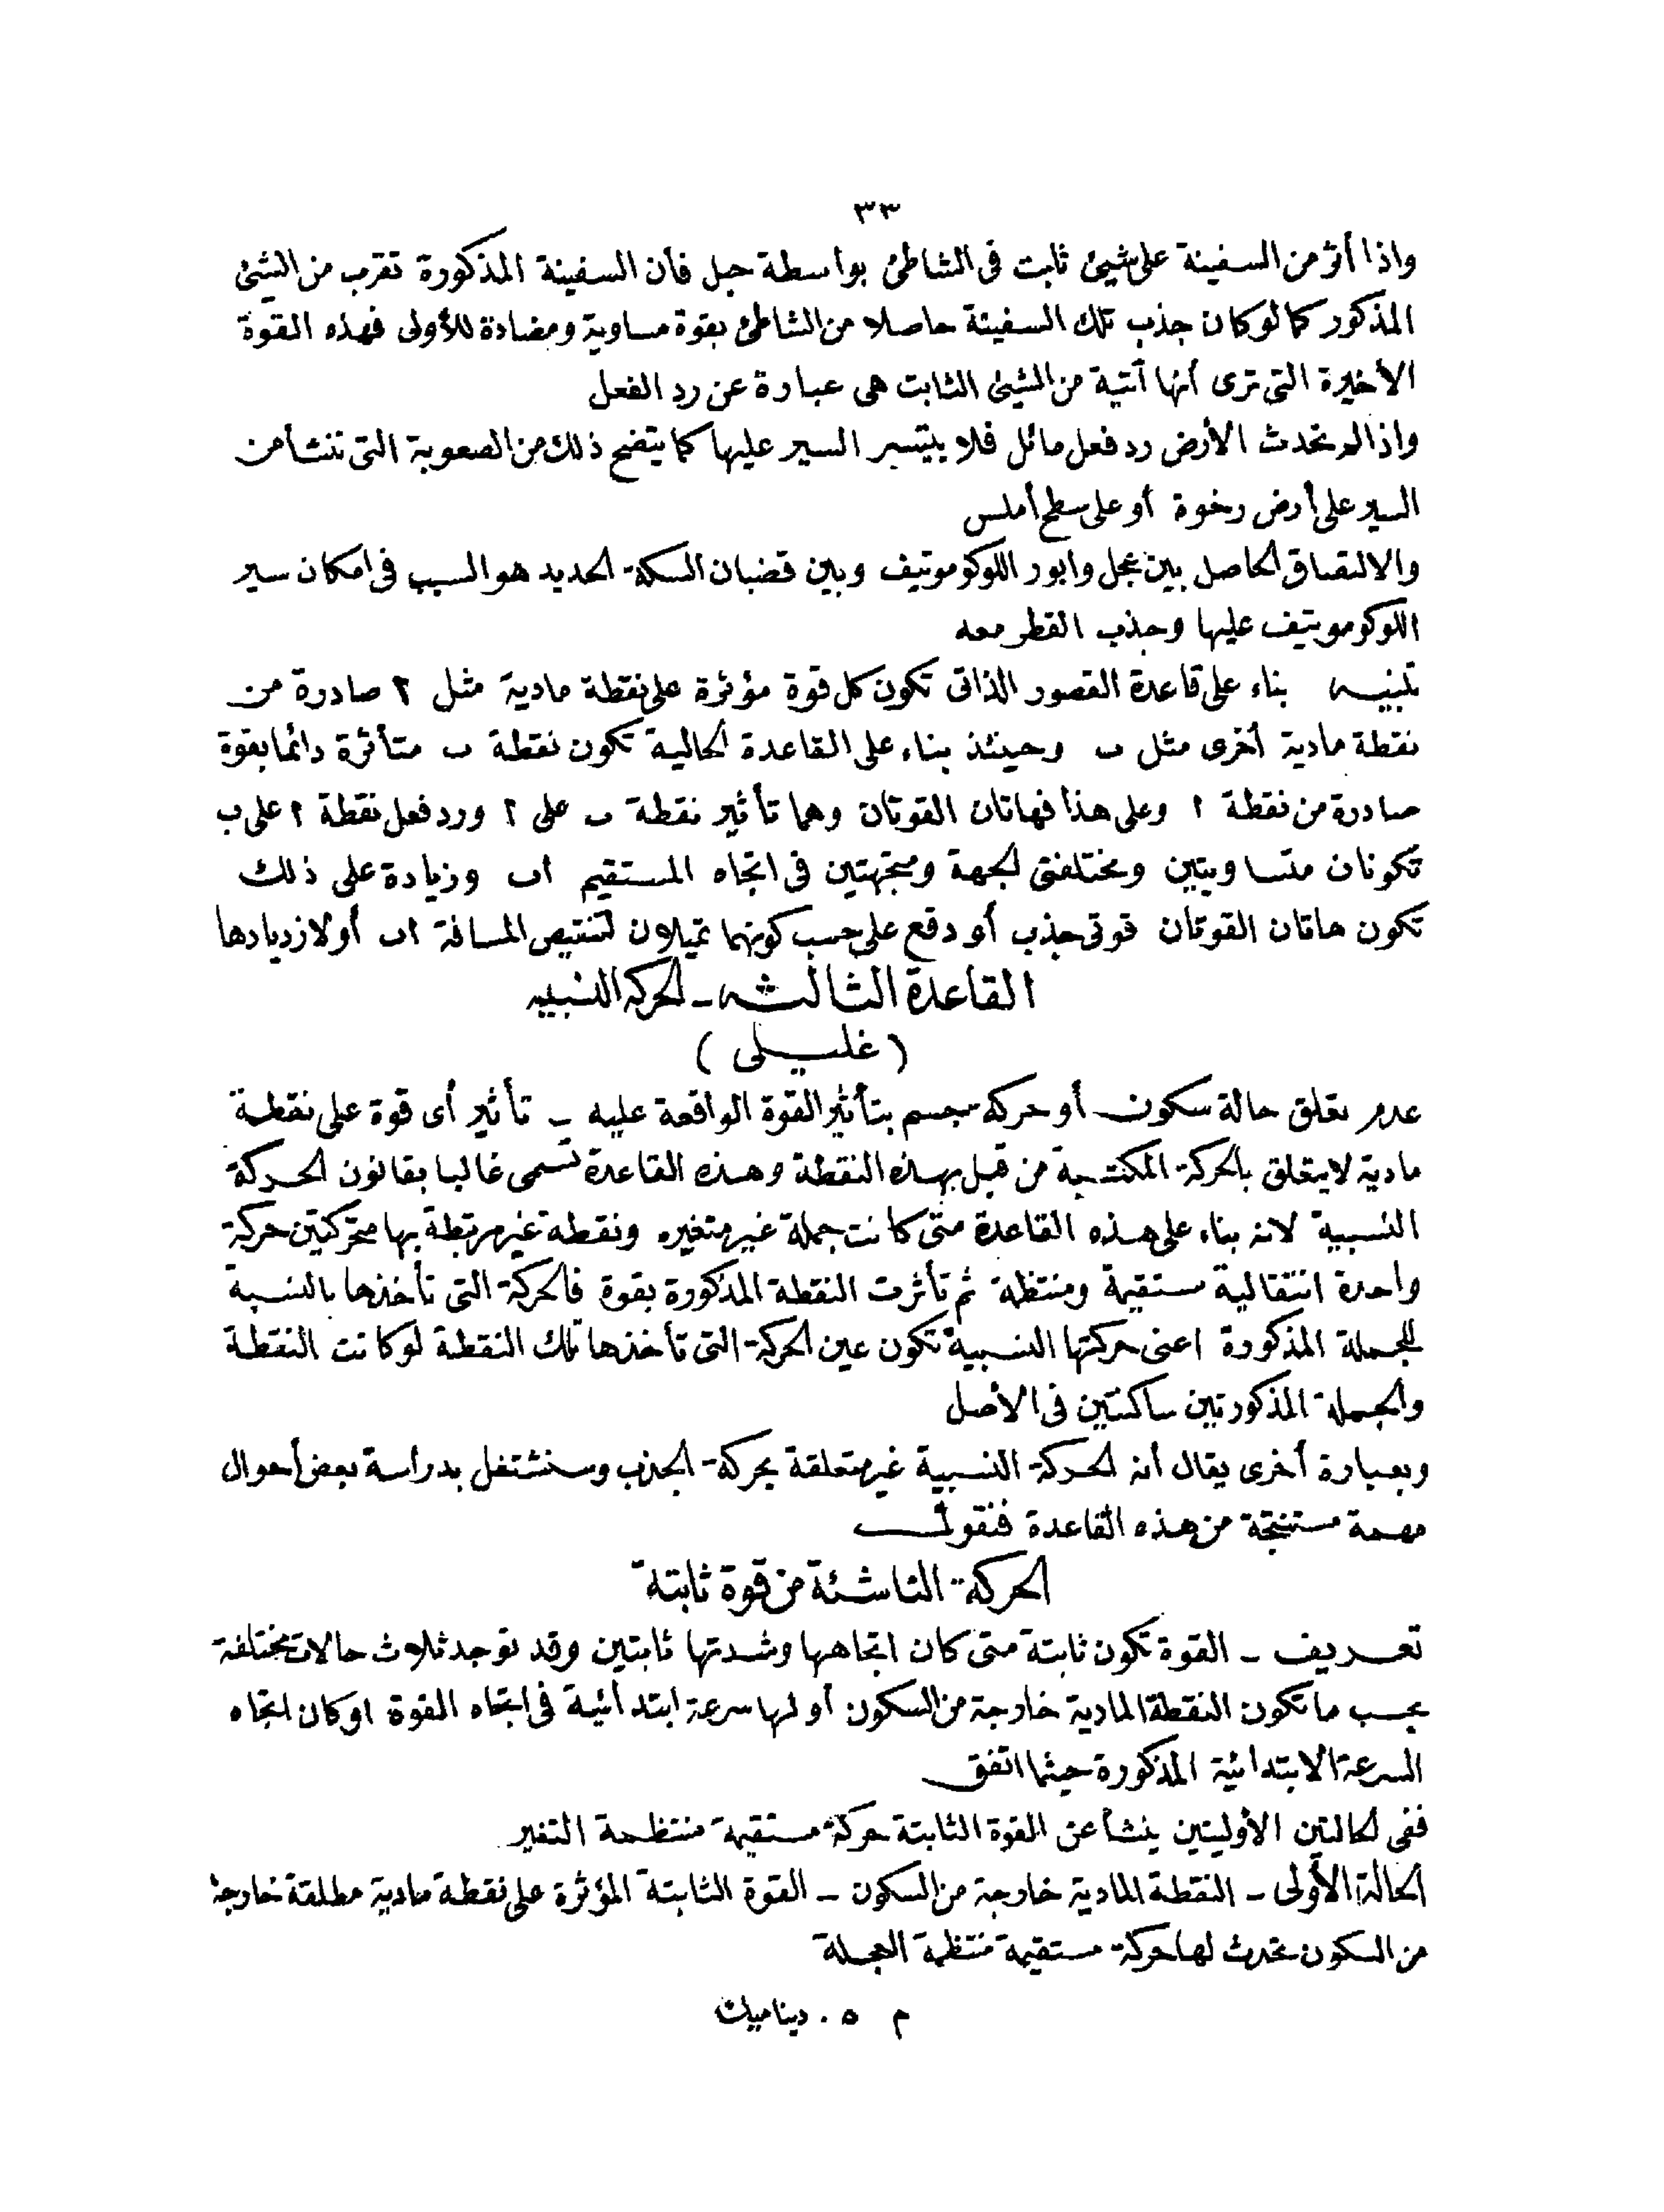 ٣٣
واذا أثر من السفينة على شيئ ثابت فى الشاطئ بواسطة حبل فأن السفينة المذكورة تقرب من الشيئ
المذكور كما لو كان جذب تلك السفينة حاصلا من الشاطئ بقوة مساوية ومضادة للأولى فهذه القوة
الأخيرة التى ترى أنها آتية من الشيئ الثابت هى عبارة عن رد الفعل
واذا لم تحدث الأرض رد فعل مائل فلا يتيسر السير عليها كما يتضح ذلك من الصعوبة التى تنشأ من
السير على أرض رخوة أو على سطح أملس
والالتصاق الحاصل بين عجل وابور اللوكوموتيف وبين قضبان السكة الحديد هو السبب فى امكان سير
اللوكوموتيف عليها وجذب القطر معه
تنبيه بناء على قاعدة القصور الذاتى تكون كل قوة مؤثرة على نقطة مادية مثل ا صادرة من
نقطة مادية أخرى مثل ب وحينئذ بناء على القاعدة الحالية تكون نقطة ب متأثرة دائما بقوة
صادرة من نقطة ا وعلى هذا فهاتان القوتان وهما تأثير نقطة ب على ا ورد فعل نقطة ا على ب
تكونان متساويتين ومختلفتى الجهة ومتجهتين فى اتجاه المستقيم اب وزيادة على ذلك
تكون هاتان القوتان قوتى جذب أو دفع على حسب كونهما تميلان لتنقيص المسافة اب أو لازديادها
القاعدة الثالثه ـ الحركه النسبيه
(غليلى)
عدم تعلق حالة سكون أو حركة جسم بتأثير القوة الواقعة عليه ـ تأثير أى قوة على نقطة
مادية لا يتعلق بالحركة المكتسبة من قبل بهذه النقطة وهذه القاعدة تسمى غالبا بقانون الحركة
النسبية لانه بناء على هذه القاعدة متى كانت جملة غير متغيره ونقطة غير مرتبطة بها متحركتين حركة
واحدة انتقالية مستقيمة ومنتظمة ثم تأثرت النقطة المذكورة بقوة فالحركة التى تأخذها بالنسبة
للجملة المذكورة اعنى حركتها النسبية تكون عين الحركة التى تأخذها تلك النقطة لو كانت النقطة
والجملة المذكورتين ساكنتين فى الأصل
وبعبارة أخرى يقال أنه الحركة النسبية غير متعلقة بحركة الجذب وسنشتغل بدراسة بعض أحوال
مهمة مستنتجة من هذه القاعدة فنقول
الحركة الناشئة من قوة ثابتة
تعريف ـ القوة تكون ثابتة متى كان اتجاهها وشدتها ثابتين وقد توجد ثلاث حالات مختلفة
بحسب ما تكون النقطة المادية خارجة من السكون أو لها سرعة ابتدائية فى اتجاه القوة او كان اتجاه
السرعة الابتدائية المذكورة حيثما اتفق
ففى الحالتين الأوليتين ينشأ عن القوة الثابتة حركة مستقيمة منتظمة التغير
الحالة الأولى ـ النقطة المادية خارجة من السكون ـ القوة الثابتة المؤثرة على نقطة مادية مطلقة خارجة
من السكون تحدث لها حركة مستقيمة منتظمة العجلة
م ٥ . ديناميك